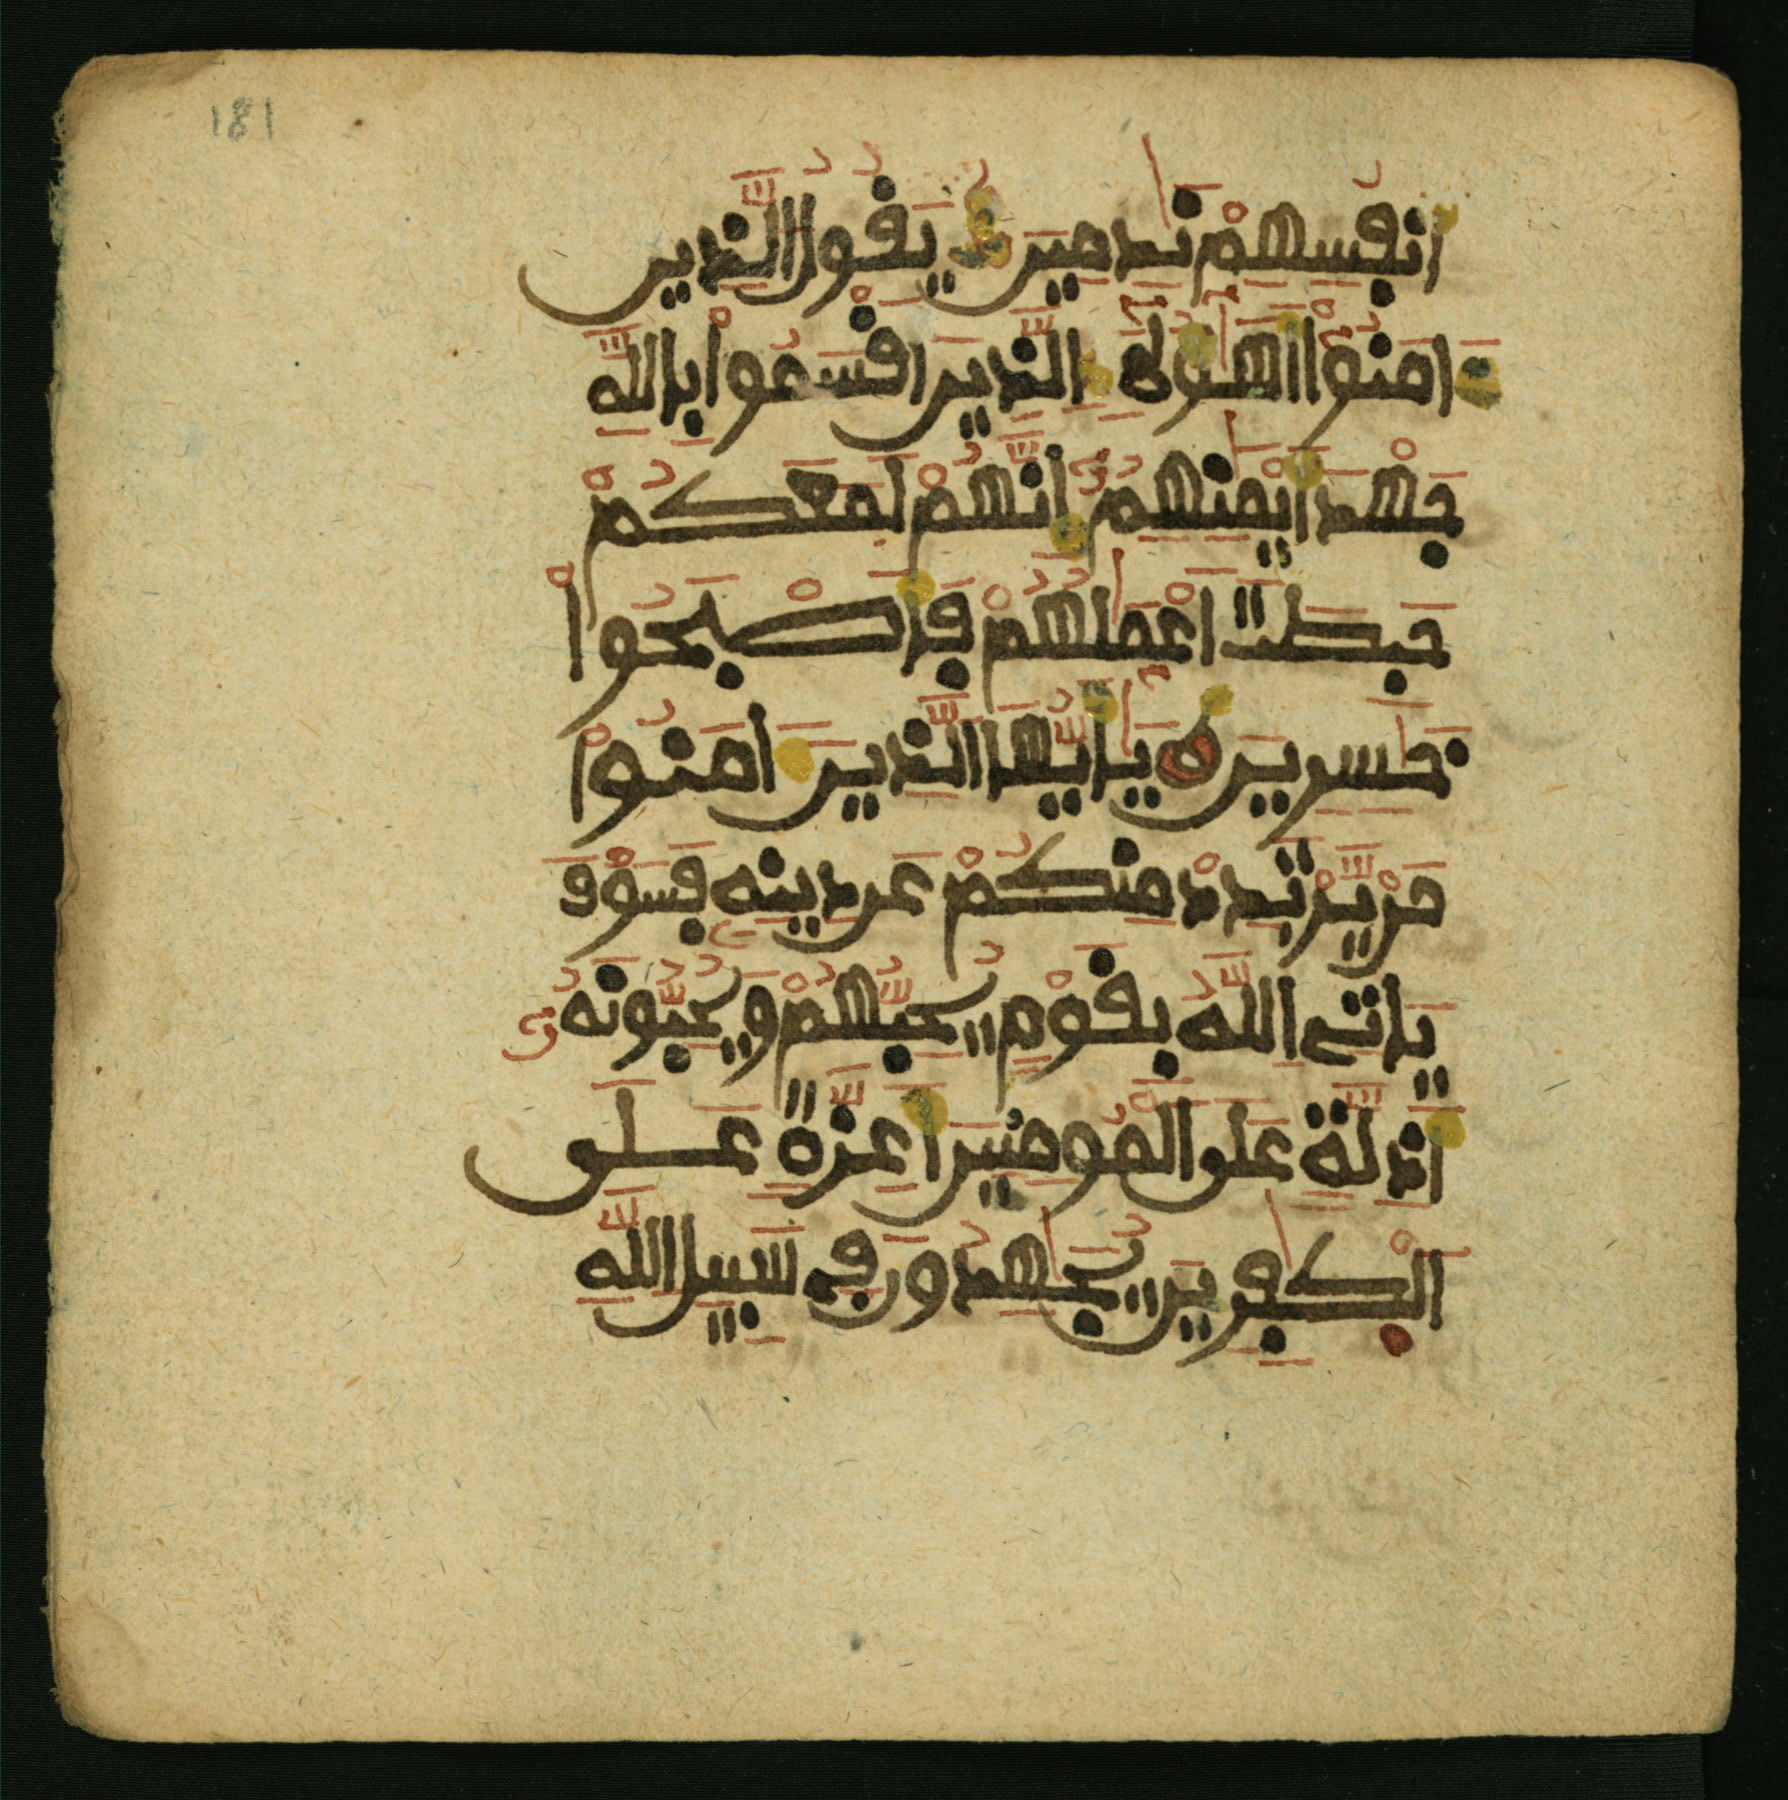 181
أَنفُسِهِمْ نَٰدِمِينَ يَقُولُ ٱلَّذِينَ
ءَامَنُوٓا۟ أَهَٰٓؤُلَآءِ ٱلَّذِينَ أَقْسَمُوا۟ بِٱللَّهِ
جَهْدَ أَيْمَٰنِهِمُۥٓ إِنَّهُمْ لَمَعَكُمْ
حَبِطَتَ اَعْمَٰلُهُمْ فَأَصْبَحُوا۟
خَٰسِرِينَ يَٰٓأَيُّهَا ٱلَّذِينَ ءَامَنُوا۟
مَنْ يَّرْتَدِدْ مِنكُمْ عَن دِينِهِۦ فَسَوْفَ
يَأْتِى ٱللَّهُ بِقَوْمٍ يُحِبُّهُمْ وَيُحِبُّونَهُۥٓ
أَذِلَّةٍ عَلَى ٱلْمُومِنِينَ أَعِزَّةٍ عَلَى
ٱلْكَٰفِرِينَ يُجَٰهِدُونَ فِى سَبِيلِ ٱللَّهِ